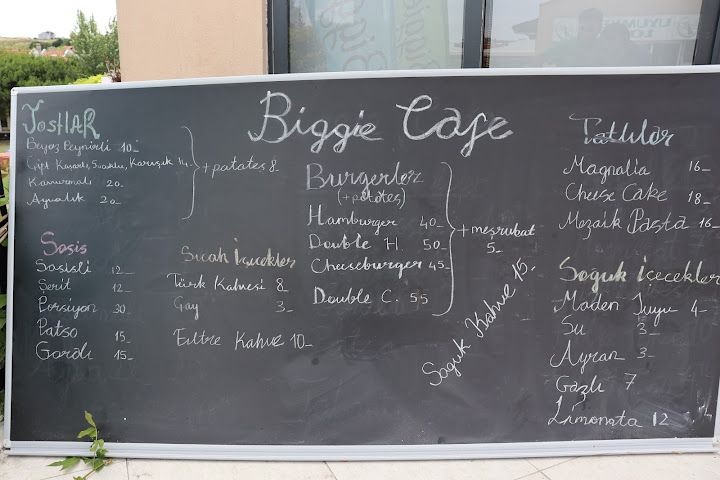 Biggie Cafe
TostLAR
Beyaz Peynirli 10
Çift Kaşarlı, Sucuklu, Karışık 14
Kavurmalı 20
Ayvalık 20
+ patates 8
Sosis
Sosisli 12
Şerit 12
Porsiyon 30
Patso 15
Gordı 15
Sıcak İçecekler
Türk Kahvesi 8
Çay 3
Filtre Kahve 10
Burgerler
(+ patates)
Hamburger 40
Double H. 50
Cheeseburger 45
Double C. 55
+ meşrubat
5
Soğuk Kahve 15
Tatlılar
Magnalia 16
Cheese Cake 18
Mozaik Pasta 16
Soğuk İçecekler
Maden Suyu 4
Su 3
Ayran 3
Gazlı 7
Limonata 12